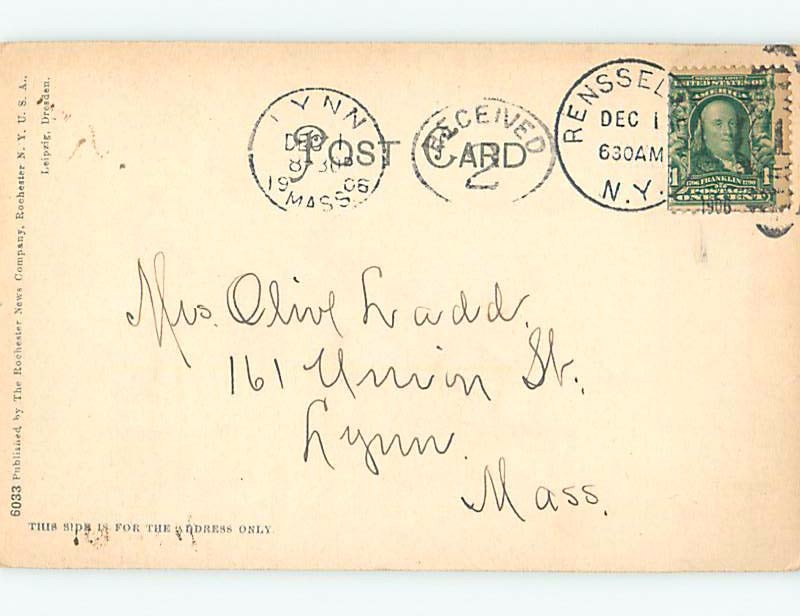 LYNN
DEC 1
8 30P
1906
MASS.
RECEIVED
2
POST CARD
RENSSEL
DEC 1
630AM
N.Y.
1906
SERIES 1902
UNITED STATES OF
AMERICA
1 1706 FRANKLIN 1790 1
POSTAGE
ONE CENT
Mrs. Olive Ladd.
161 Union St.
Lynn.
Mass.
6033 Published by The Rochester News Company, Rochester N. Y. U. S. A.,
Leipzig, Dresden.
THIS SIDE IS FOR THE ADDRESS ONLY.